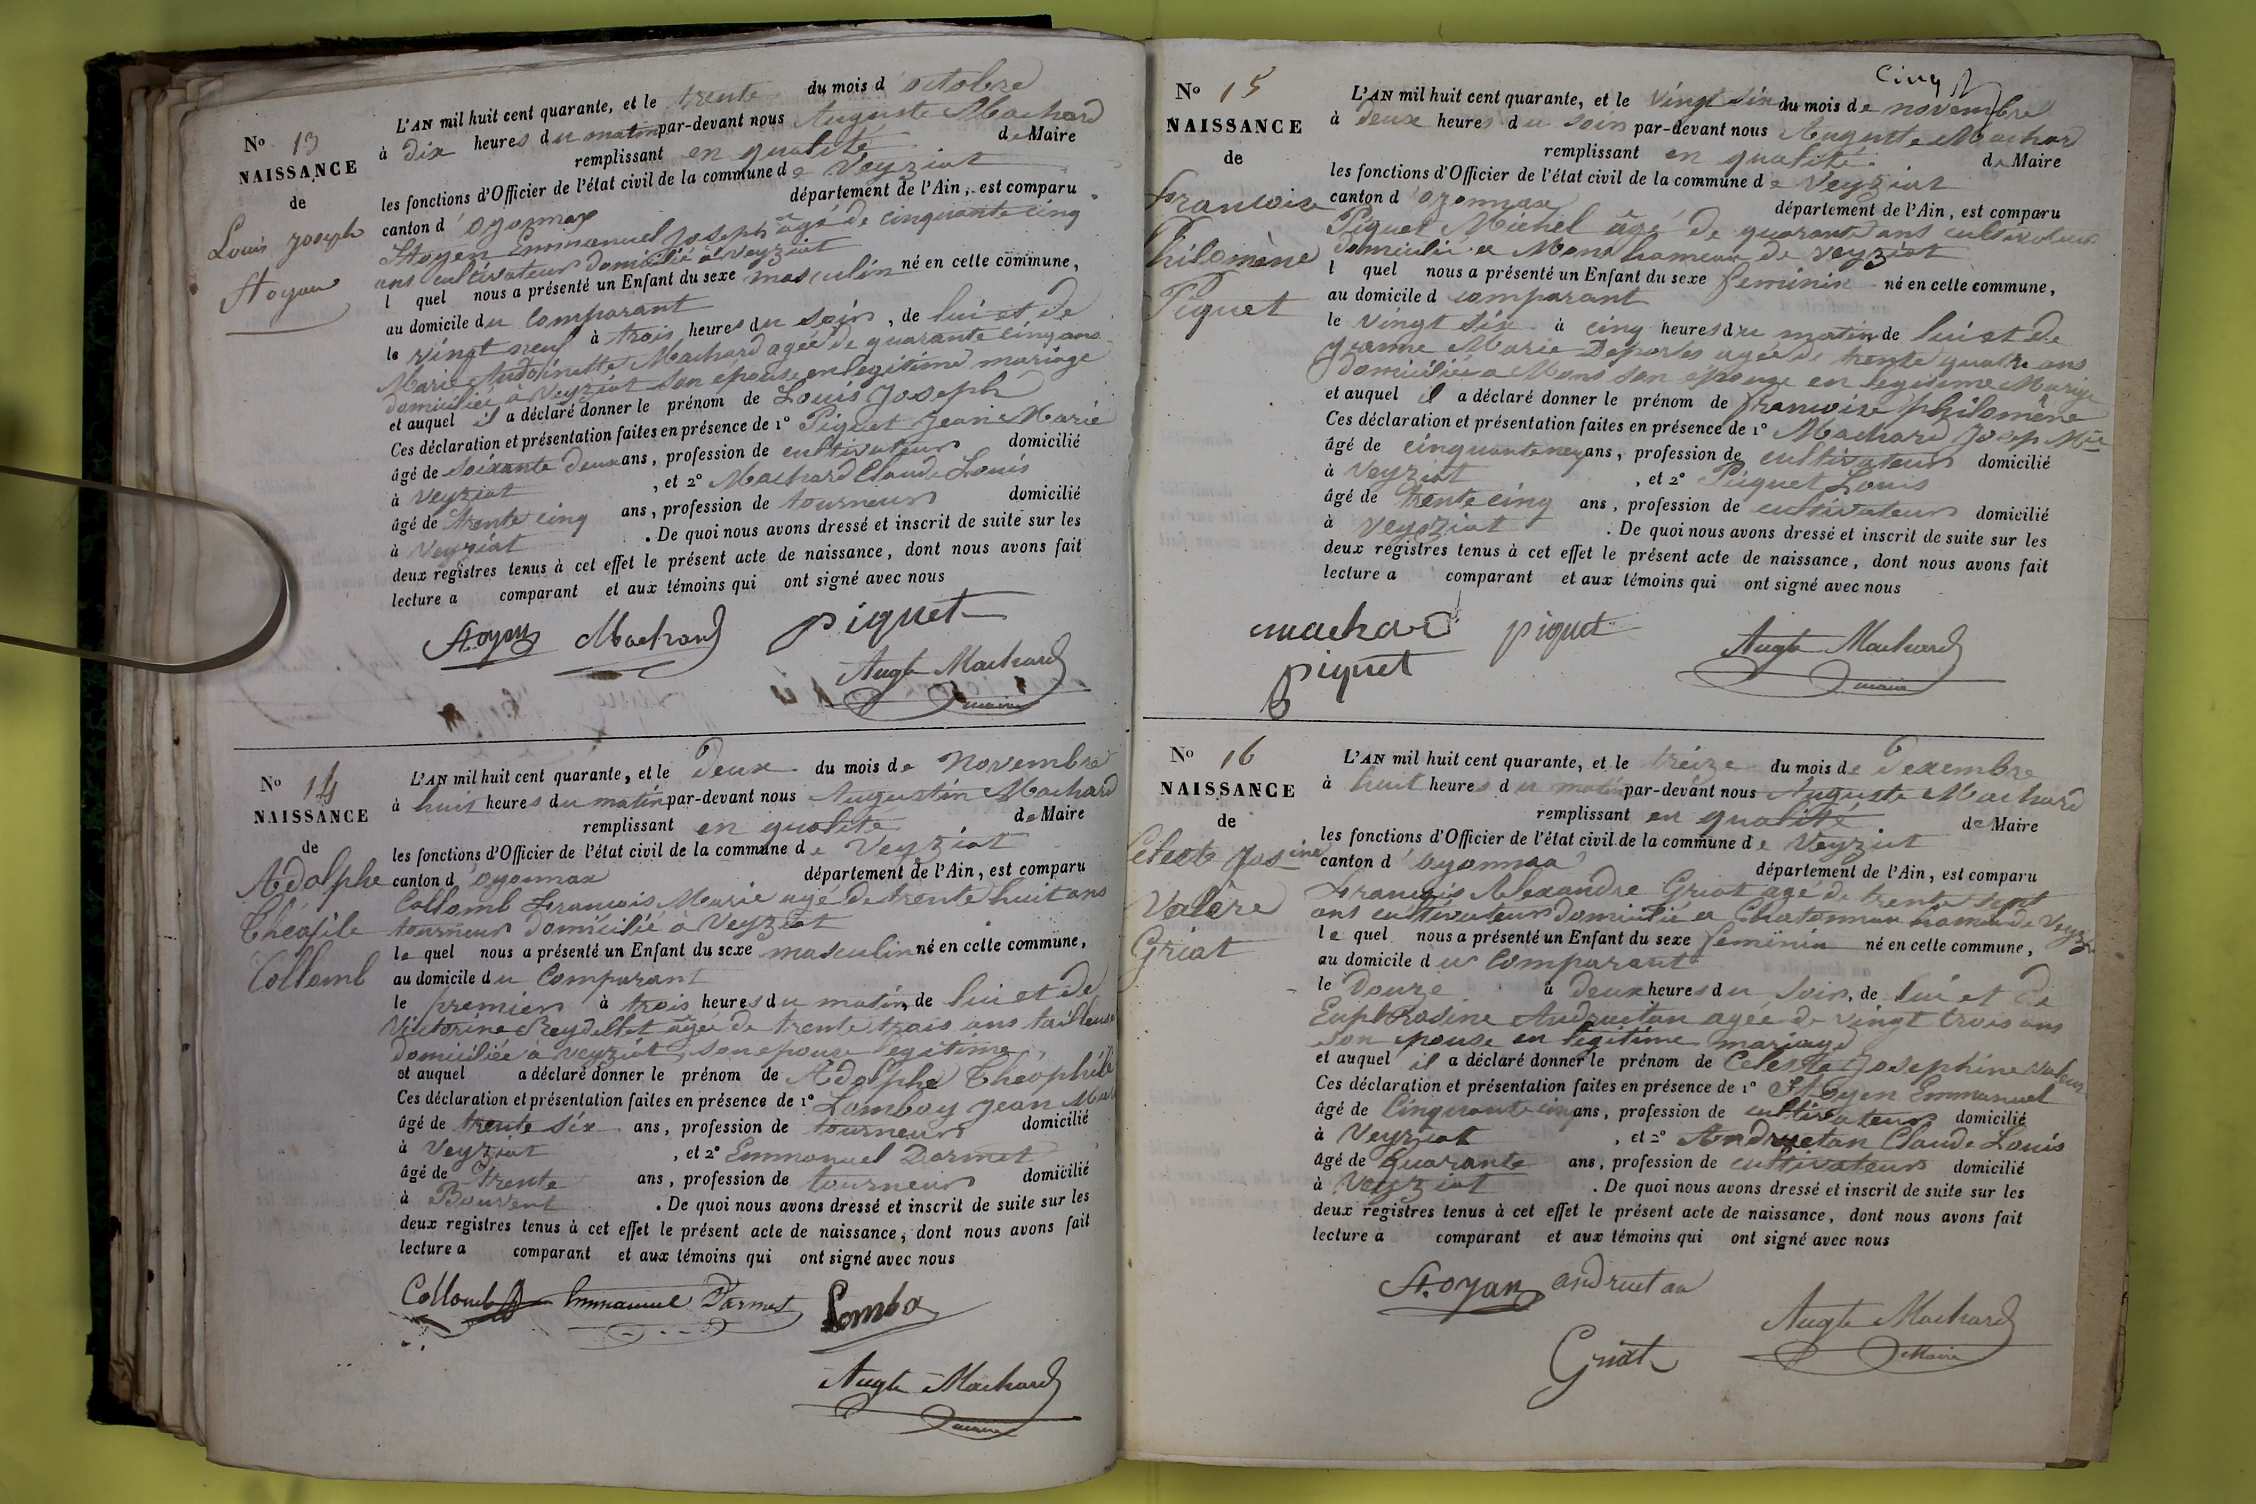 N° 13
NAISSANCE
de
Louis Joseph
Stoyen
L'AN mil huit cent quarante, et le trente du mois d'octobre
à dix heures du matin par-devant nous Auguste Machard
remplissant en qualité de Maire
les fonctions d'Officier de l'état civil de la commune de Veyziat
canton d'oyonnax département de l'Ain, est comparu
Stoyen Emmanuel Joseph âgé de cinquante cinq
ans cultivateur domicilié à Veyziat
l quel nous a présenté un Enfant du sexe masculin né en cette commune,
au domicile du Comparant
le vingt neuf à trois heures du soir, de lui et de
Marie Machard agée de quarante cinq ans
domiciliée à Veyziat son épouse en legitime mariage
et auquel il a déclaré donner le prénom de Louis Joseph
Ces déclaration et présentation faites en présence de 1° Piquet Jean Marie
âgé de soixante deux ans, profession de cultivateur domicilié
à Veyziat, et 2° Machard Claude Louis
âgé de trente cinq ans, profession de tourneur domicilié
à Veyziat. De quoi nous avons dressé et inscrit de suite sur les
deux registres tenus à cet effet le présent acte de naissance, dont nous avons fait
lecture a comparant et aux témoins qui ont signé avec nous
Stoyen Machard piquet
Augte Machard
maire
N° 14
NAISSANCE
de
Adolphe
Théofile
Collomb
L'AN mil huit cent quarante, et le Deux du mois de Novembre
à huit heures du matin par-devant nous Augustin Machard
remplissant en qualité de Maire
les fonctions d'Officier de l'état civil de la commune de Veyziat
canton d'oyonnax département de l'Ain, est comparu
Collomb François Marie agé de trente huit ans
tourneur domicilié à Veyziat
le quel nous a présenté un Enfant du sexe masculin né en cette commune,
au domicile du Comparant
le premier à trois heures du matin, de lui et de
Victorine Reydellet âgée de trente trois ans tailleuse
domiciliée à veyziat, son epouse legitime,
et auquel a déclaré donner le prénom de Adolphe Théophile
Ces déclaration et présentation faites en présence de 1° Lamboy Jean
âgé de trente six ans, profession de tourneur domicilié
à Veyziat, et 2° Emmanuel Darmet
âgé de trente ans, profession de tourneur domicilié
à Bouvent. De quoi nous avons dressé et inscrit de suite sur les
deux registres tenus à cet effet le présent acte de naissance, dont nous avons fait
lecture a comparant et aux témoins qui ont signé avec nous
Collomb Emmanuel Darmet Lamboy
Augte Machard
maire
N° 15
NAISSANCE
de
francoise
Philomène
Piquet
cinq
L'AN mil huit cent quarante, et le vingt six du mois de novembre
à Deux heures du soir par-devant nous Auguste Machard
remplissant en qualité de Maire
les fonctions d'Officier de l'état civil de la commune de Veyziat
canton d'oyonnax département de l'Ain, est comparu
Piquet Michel âgé de quarante ans cultivateur
domicilié a Mons hameau de veyziat
l quel nous a présenté un Enfant du sexe feminin né en cette commune,
au domicile d comparant
le vingt six à cinq heures du matin de lui et de
jeanne Marie Deportes agée de trente quatre ans
domiciliée a Mons son épouse en legitime Mariage
et auquel il a déclaré donner le prénom de francoise philomène
Ces déclaration et présentation faites en présence de 1° Machard Josep Mie
âgé de cinquante ans, profession de cultivateur domicilié
à Veyziat, et 2° Piquet Louis
âgé de trente cinq ans, profession de cultivateur domicilié
à Veyziat. De quoi nous avons dressé et inscrit de suite sur les
deux registres tenus à cet effet le présent acte de naissance, dont nous avons fait
lecture a comparant et aux témoins qui ont signé avec nous
machard piquet Augte Machard
piquet maire
N° 16
NAISSANCE
de
Celeste Josine
Valère
Griot
L'AN mil huit cent quarante, et le treize du mois de Dexembre
à huit heures du matin par-devant nous Auguste Machard
remplissant en qualité de Maire
les fonctions d'Officier de l'état civil de la commune de Veyziat
canton d'oyonnax département de l'Ain, est comparu
François Alexandre Griot agé de trente sept
ans cultivateur domicilié a Chatonnax hameau de Veyziat
le quel nous a présenté un Enfant du sexe feminin né en cette commune,
au domicile du Comparant
le Douze à deux heures du soir, de lui et de
Euphrosine Andruetan agée de vingt trois ans
son épouse en legitime mariage
et auquel il a déclaré donner le prénom de Celeste Josephine
Ces déclaration et présentation faites en présence de 1° Stoyen Emmanuel
âgé de Cinquante cinq ans, profession de cultivateur domicilié
à Veyziat, et 2° Andruetan Claude Louis
âgé de quarante ans, profession de cultivateur domicilié
à Veyziat. De quoi nous avons dressé et inscrit de suite sur les
deux registres tenus à cet effet le présent acte de naissance, dont nous avons fait
lecture a comparant et aux témoins qui ont signé avec nous
Stoyan andruetan
Augte Machard
Griot Maire